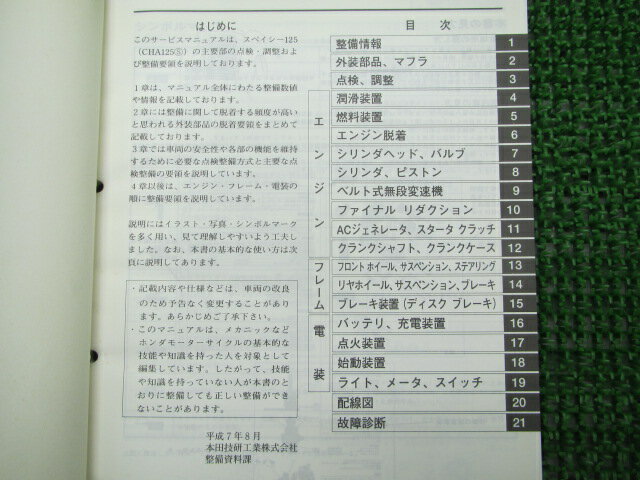 はじめに
このサービスマニュアルは、スペイシー125
(CHA125Ⓢ) の主要部の点検・調整およ
び整備要領を説明しております。
1章は、マニュアル全体にわたる整備数値
や情報を記載しております。
2章には整備に関して脱着する頻度が高い
と思われる外装部品の脱着要領をまとめて
記載しております。
3章では車両の安全性や各部の機能を維持
するために必要な点検整備方式と主要な点
検整備の要領を説明しています。
4章以後は、エンジン・フレーム・電装の
順に整備要領を説明しています。
説明にはイラスト・写真・シンボルマーク
を多く用い、見て理解しやすいよう工夫し
ました。なお、本書の基本的な使い方は次
頁に説明してあります。
・記載内容や仕様などは、車両の改良
のため予告なく変更することがあり
ます。あらかじめご了承下さい。
・このマニュアルは、メカニックなど
ホンダモーターサイクルの基本的な
技能や知識を持った人を対象として
編集しています。したがって、技能
や知識を持っていない人が本書のと
おりに整備しても正しい整備ができ
ないことがあります。
平成7年8月
本田技研工業株式会社
整備資料課
目 次
整備情報 1
外装部品、マフラ 2
点検、調整 3
エンジン
潤滑装置 4
燃料装置 5
エンジン脱着 6
シリンダヘッド、バルブ 7
シリンダ、ピストン 8
ベルト式無段変速機 9
ファイナル リダクション 10
ACジェネレータ、スタータ クラッチ 11
クランクシャフト、クランクケース 12
フレーム
フロント ホイール、サスペンション、ステアリング 13
リヤホイール、サスペンション、ブレーキ 14
ブレーキ装置 (ディスク ブレーキ) 15
電装
バッテリ、充電装置 16
点火装置 17
始動装置 18
ライト、メータ、スイッチ 19
配線図 20
故障診断 21